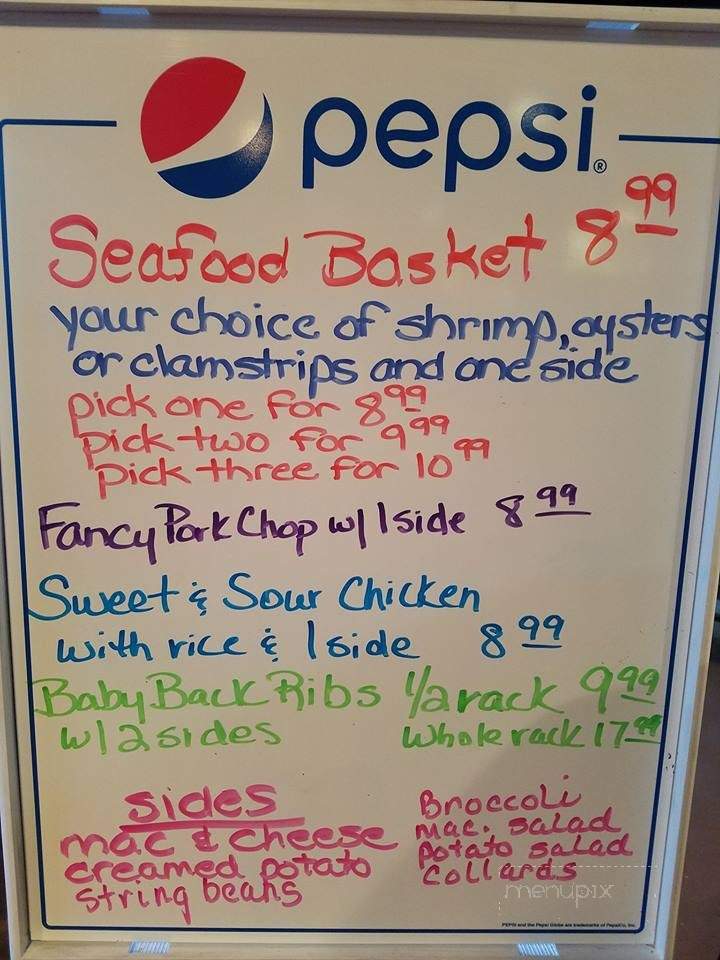 pepsi®
Seafood Basket 8.99
your choice of shrimp, oysters
or clamstrips and one side
pick one for 8.99
pick two for 9.99
pick three for 10.99
Fancy Pork Chop w/ 1 side 8.99
Sweet & Sour Chicken
with rice & 1 side 8.99
Baby Back Ribs 1/2 rack 9.99
w/ 2 sides whole rack 17.99
sides
mac & cheese
creamed potato
string beans
Broccoli
mac. salad
potato salad
collards
menupix
PEPSI and the Pepsi Globe are trademarks of PepsiCo, Inc.